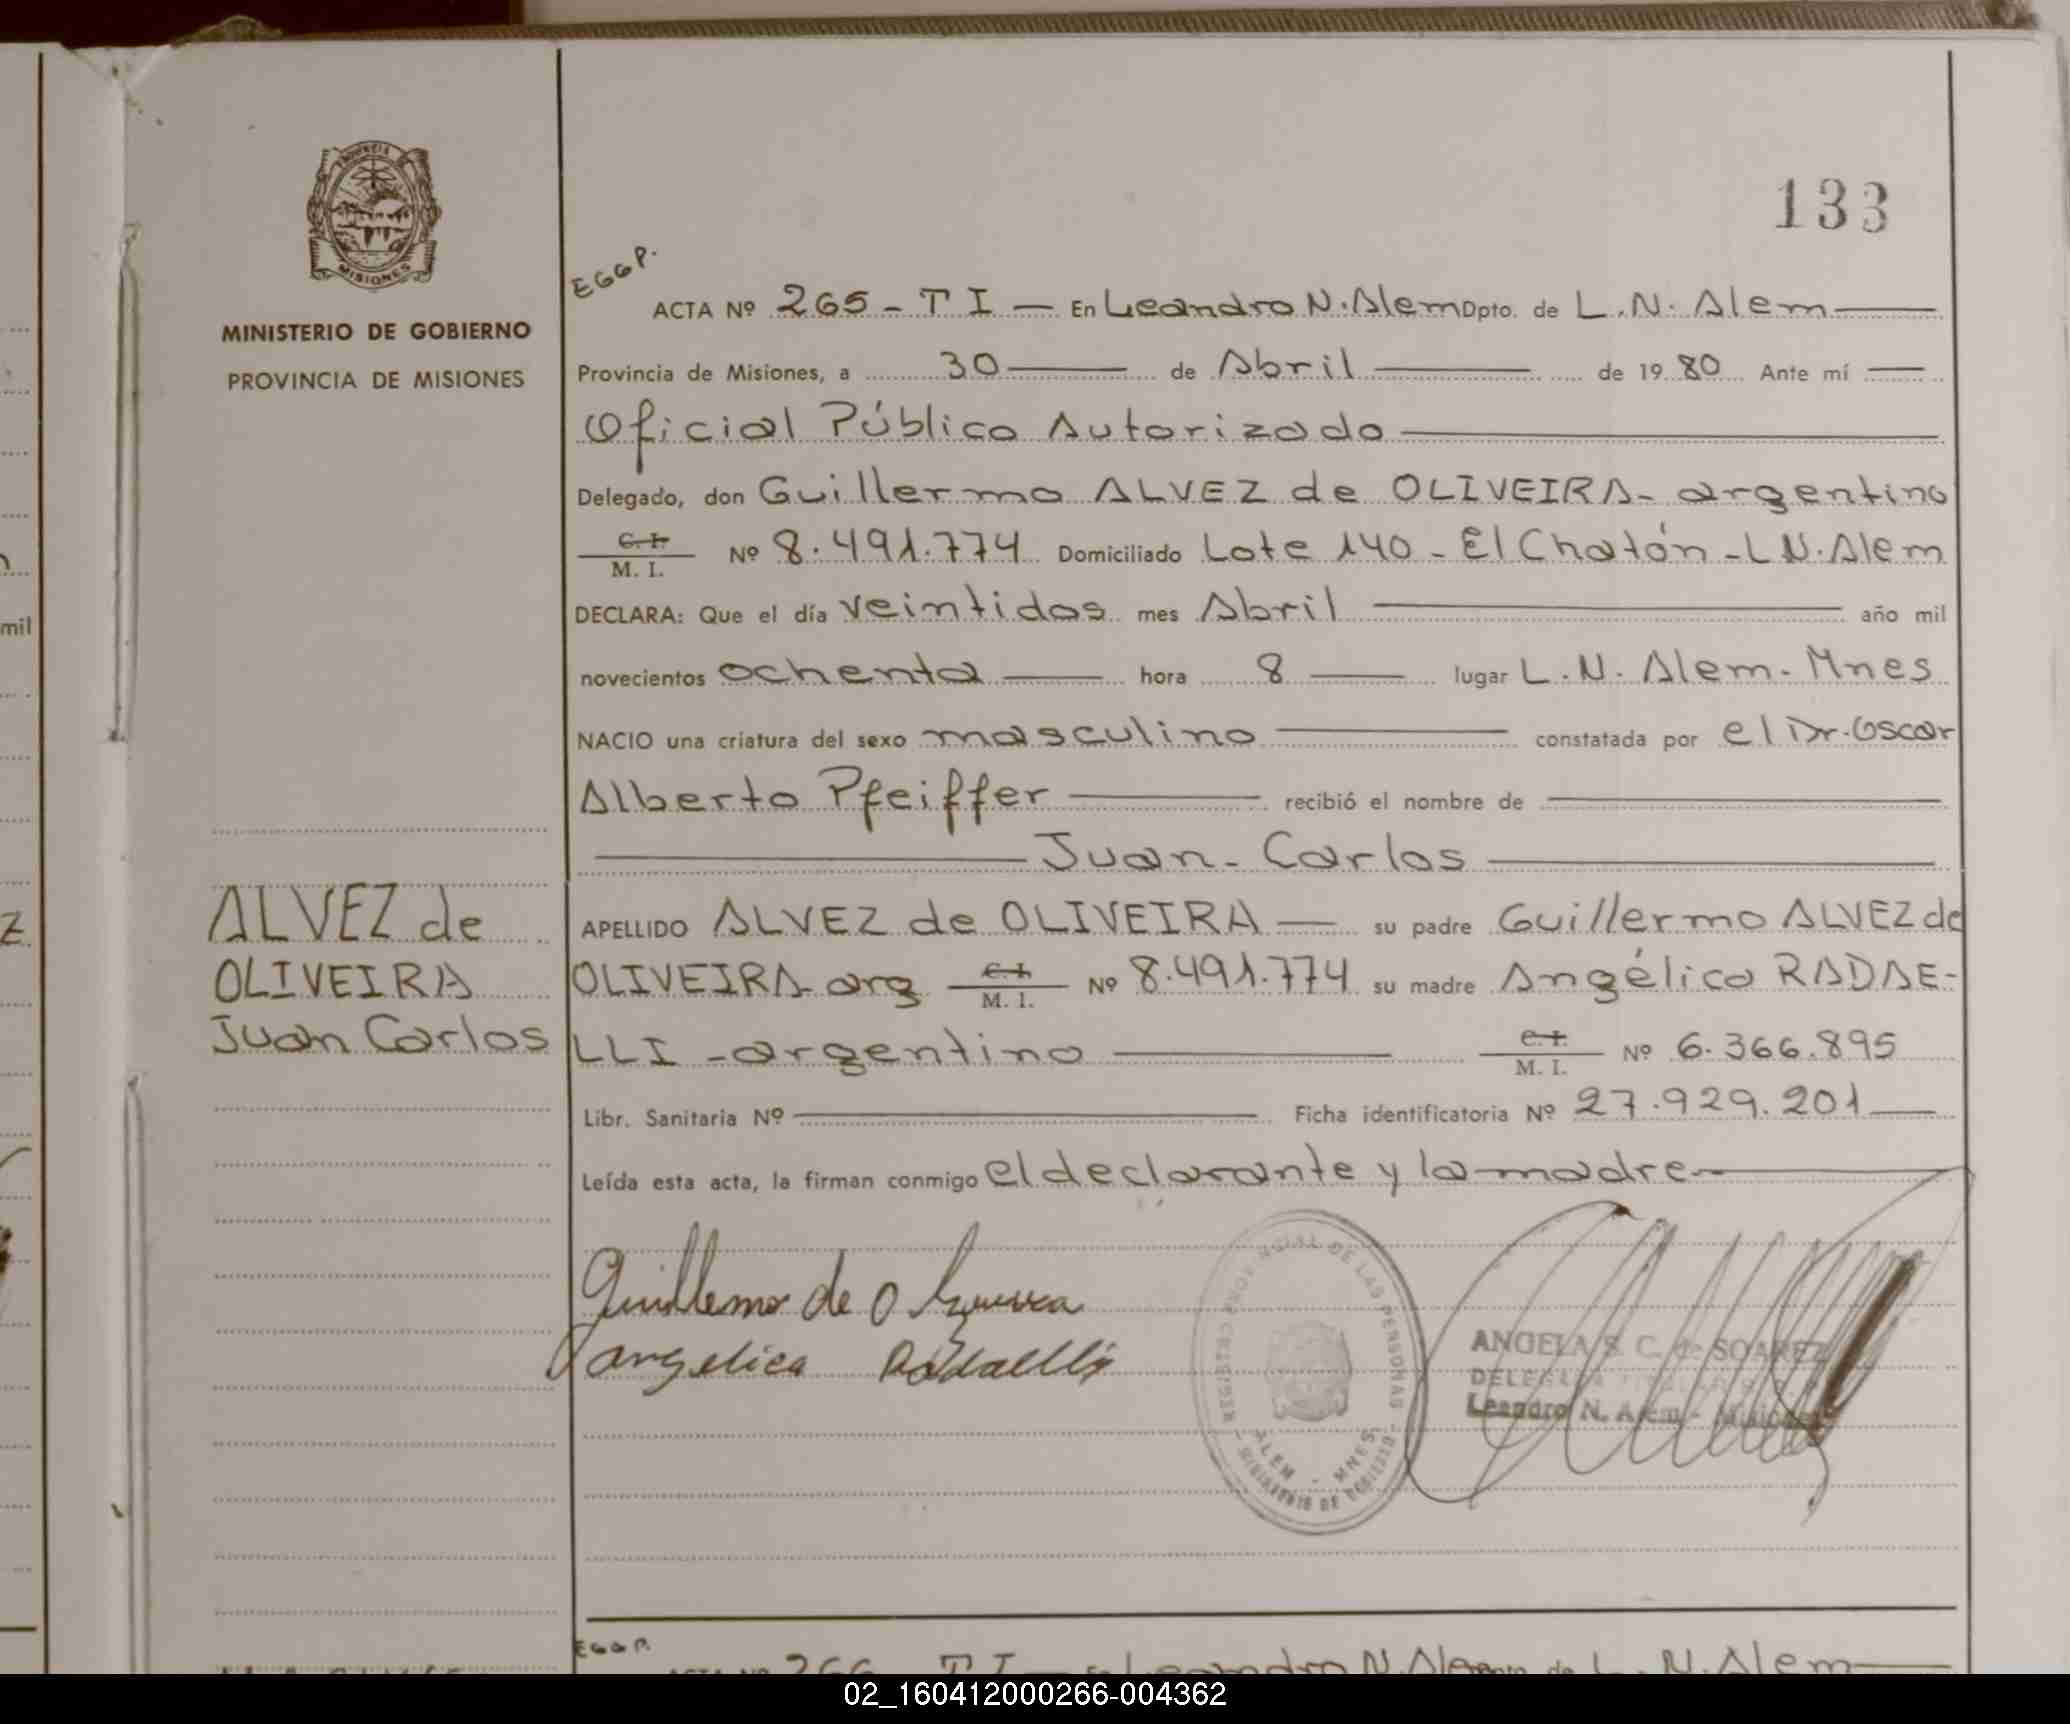 133
PROVINCIA DE
MISIONES
MINISTERIO DE GOBIERNO
PROVINCIA DE MISIONES
EGGP.
ACTA Nº 265 - T I — En Leandro N. Alem Dpto. de L. N. Alem —
Provincia de Misiones, a 30 — de Abril — de 1980 Ante mí —
Oficial Público Autorizado —
Delegado, don Guillermo ALVEZ de OLIVEIRA - argentino
C. I.
M. I. Nº 8.491.774 Domiciliado Lote 140 - El Chatón - L N. Alem
DECLARA: Que el día veintidos mes Abril — año mil
novecientos ochenta — hora 8 — lugar L. N. Alem - Mnes
NACIO una criatura del sexo masculino — constatada por el Dr. Oscar
Alberto Pfeiffer — recibió el nombre de —
— Juan - Carlos —
APELLIDO ALVEZ de OLIVEIRA — su padre Guillermo ALVEZ de
OLIVEIRA - arg C. I. M. I. Nº 8.491.774 su madre Angélica RADAE-
LLI - argentina — C. I. M. I. Nº 6.366.895
Libr. Sanitaria Nº — Ficha identificatoria Nº 27.929.201 —
Leída esta acta, la firman conmigo el declarante y la madre —
ALVEZ de
OLIVEIRA
Juan Carlos
Guillermo de O
angelica Radaelli
REGISTRO PROVINCIAL DE LAS PERSONAS
ALEM - MNES
MINISTERIO DE GOBIERNO
ANGELA S. C. de SOAREZ
DELEGADA TITULAR
Leandro N. Alem - Misiones
EGGP.
ACTA Nº 266 T I — En Leandro N. Alem Dpto. de L. N. Alem —
mil
Z
02_160412000266-004362